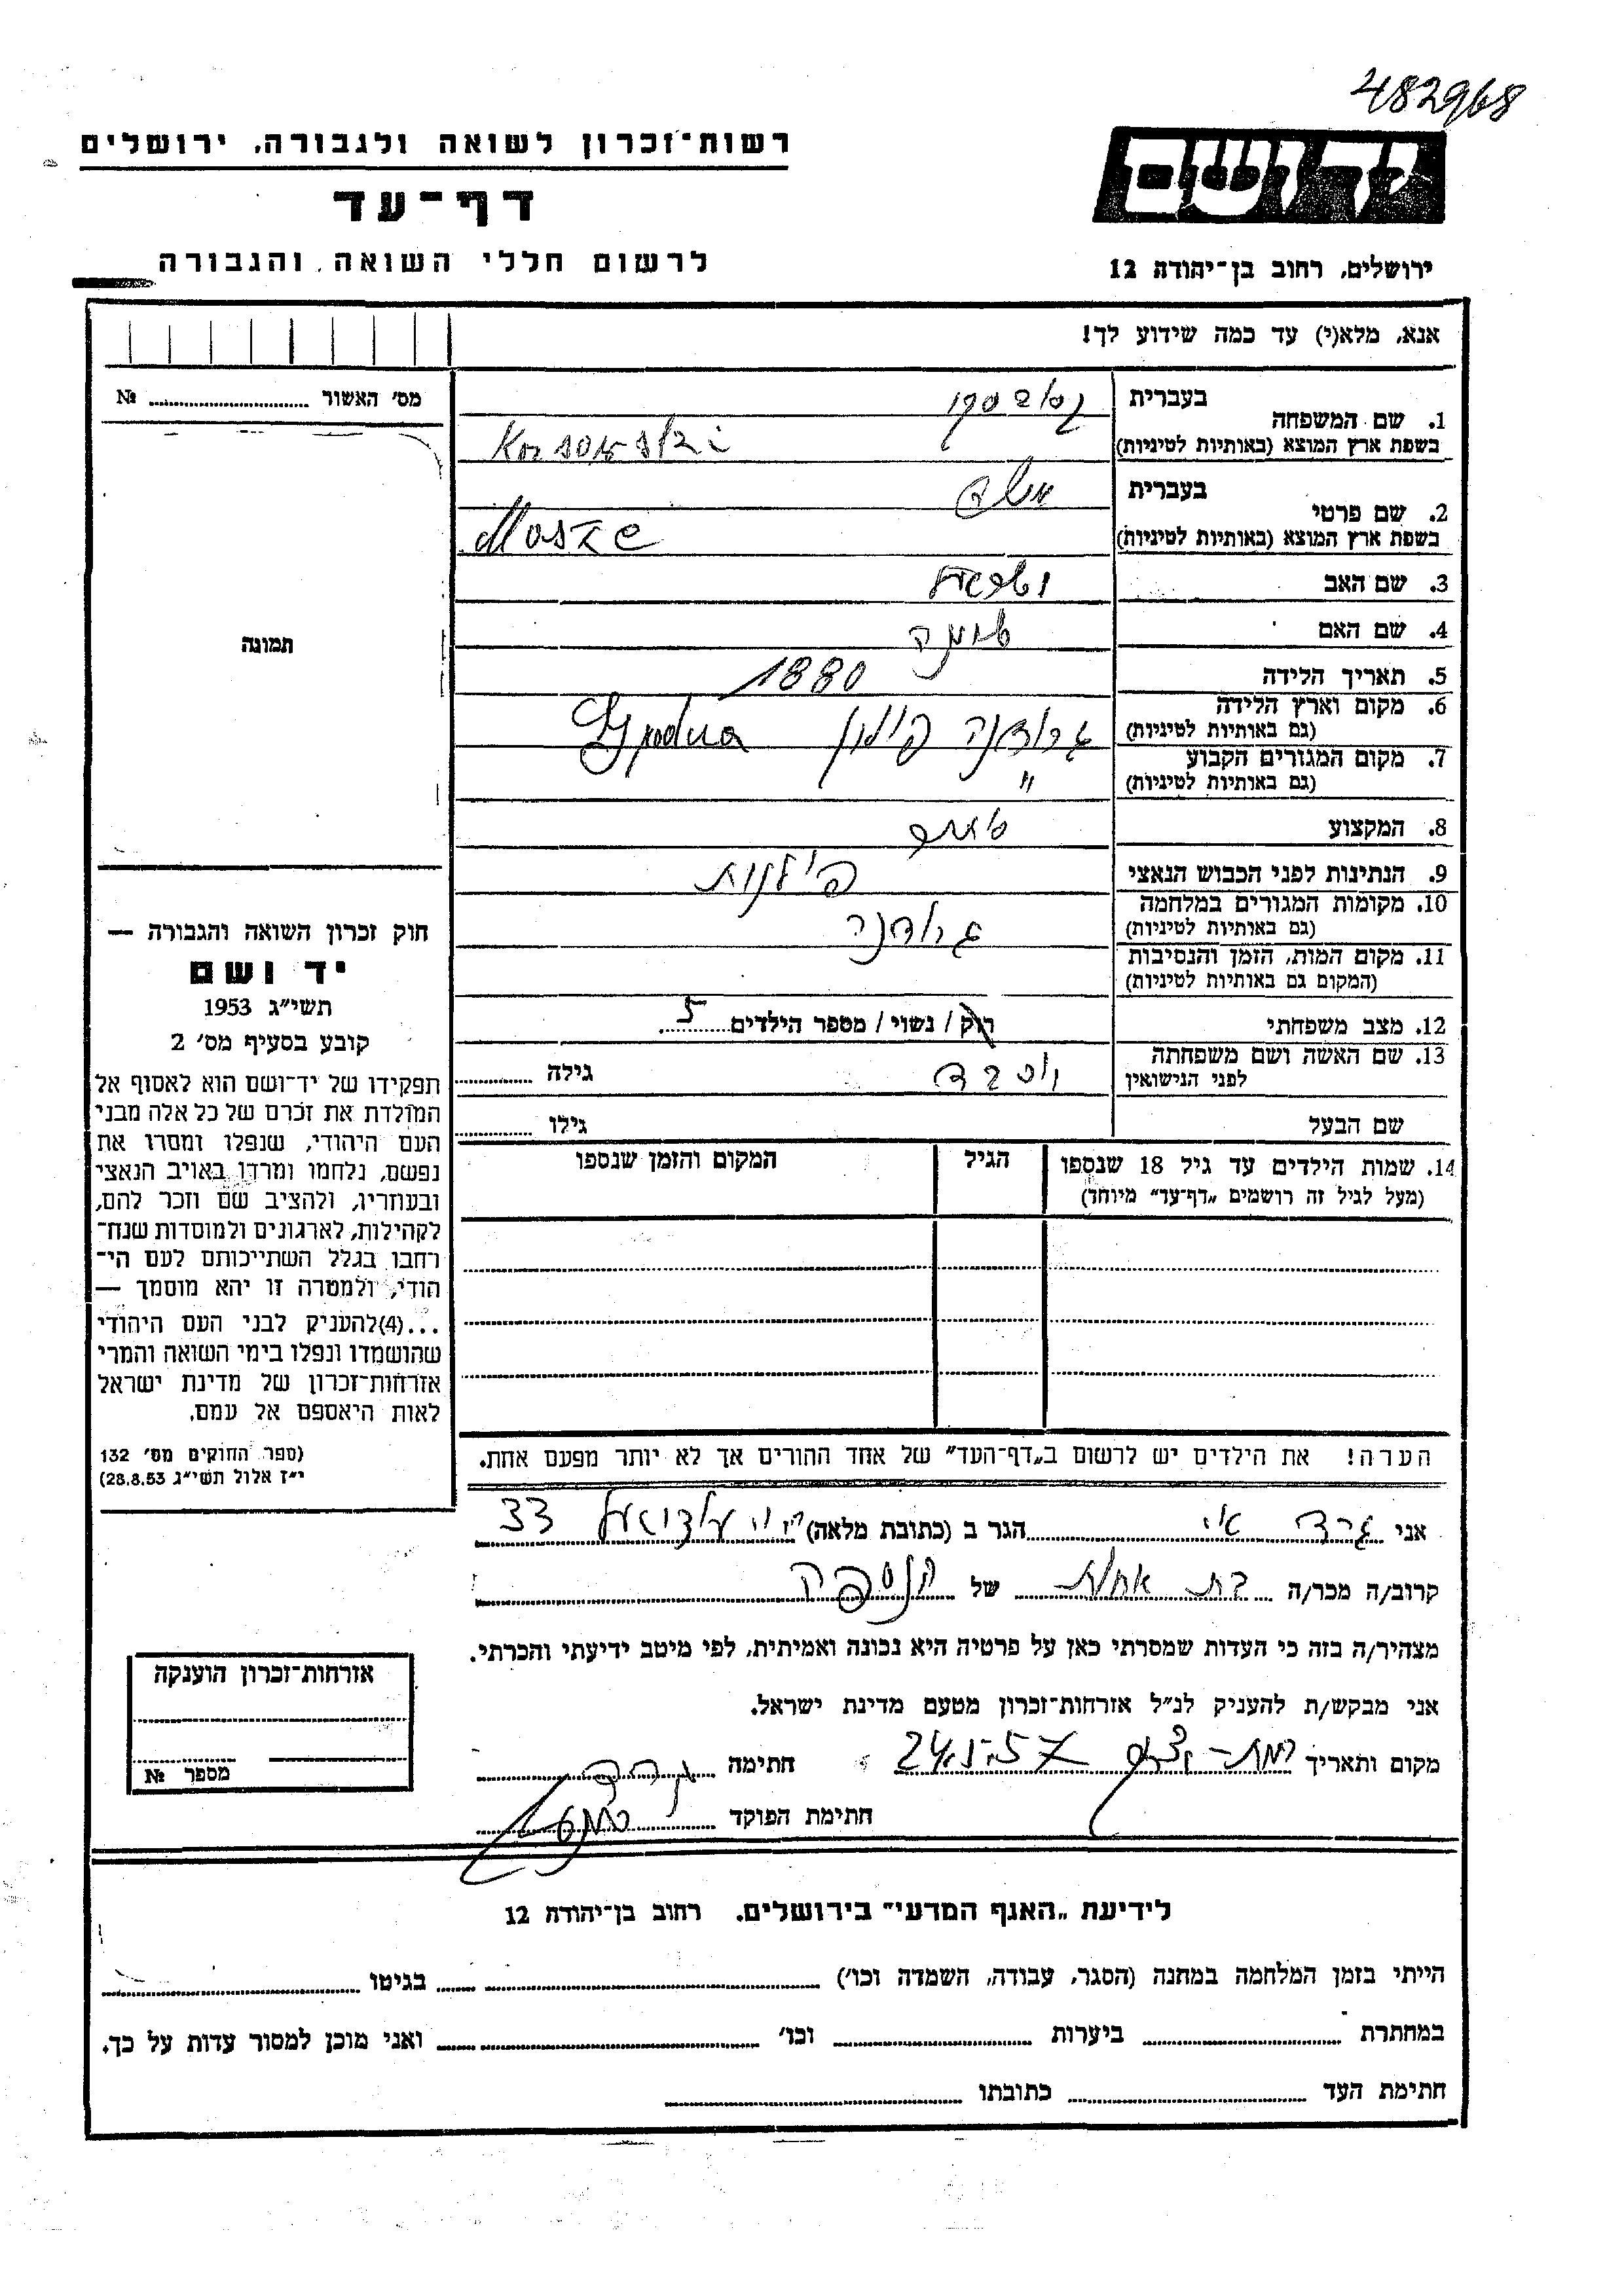 482968
יד ושם
רשות־זכרון לשואה ולגבורה, ירושלים
דף־עד
לרשום חללי השואה והגבורה
ירושלים, רחוב בן־יהודה 12
אנא, מלא(י) עד כמה שידוע לך!
מס׳ האשור № 
1. שם המשפחה
בעברית
בשפת ארץ המוצא (באותיות לטיניות)
2. שם פרטי
בעברית משה
בשפת ארץ המוצא (באותיות לטיניות)
3. שם האב
4. שם האם
5. תאריך הלידה 1880
6. מקום וארץ הלידה גרודנה פולין Grodna
(גם באותיות לטיניות)
7. מקום המגורים הקבוע "
(גם באותיות לטיניות)
8. המקצוע סוחר
9. הנתינות לפני הכבוש הנאצי פולנית
10. מקומות המגורים במלחמה גרודנה
(גם באותיות לטיניות)
11. מקום המות, הזמן והנסיבות
(המקום גם באותיות לטיניות)
12. מצב משפחתי רוק / נשוי / מספר הילדים 5
13. שם האשה ושם משפחתה
לפני הנישואין גילה
שם הבעל גילו
14. שמות הילדים עד גיל 18 שנספו
(מעל לגיל זה רושמים „דף־עד” מיוחד)
הגיל
המקום והזמן שנספו
תמונה
חוק זכרון השואה והגבורה —
יד ושם
תשי״ג 1953
קובע בסעיף מס׳ 2
תפקידו של יד־ושם הוא לאסוף אל
המולדת את זכרם של כל אלה מבני
העם היהודי, שנפלו ומסרו את
נפשם, נלחמו ומרדו באויב הנאצי
ובעוזריו, ולהציב שם וזכר להם,
לקהילות, לארגונים ולמוסדות שנח־
רחבו בגלל השתייכותם לעם הי־
הודי, ולמטרה זו יהא מוסמך —
...(4)להעניק לבני העם היהודי
שהושמדו ונפלו בימי השואה והמרי
אזרחות־זכרון של מדינת ישראל
לאות היאספם אל עמם.
(ספר החוקים מס׳ 132
י״ז אלול תשי״ג 28.8.53)
הערה! את הילדים יש לרשום ב„דף־העד” של אחד ההורים אך לא יותר מפעם אחת.
אני הגר ב (כתובת מלאה) 33
קרוב/ה מכר/ה בת אחות של הנספה
מצהיר/ה בזה כי העדות שמסרתי כאן על פרטיה היא נכונה ואמיתית, לפי מיטב ידיעתי והכרתי.
אני מבקש/ת להעניק לנ״ל אזרחות־זכרון מטעם מדינת ישראל.
מקום ותאריך 24.5.57 חתימה
חתימת הפוקד
אזרחות־זכרון הוענקה
מספר №
לידיעת „האגף המדעי” בירושלים, רחוב בן־יהודה 12
הייתי בזמן המלחמה במחנה (הסגר, עבודה, השמדה וכו׳) בגיטו
במחתרת ביערות וכו׳ ואני מוכן למסור עדות על כך.
חתימת העד כתובתו